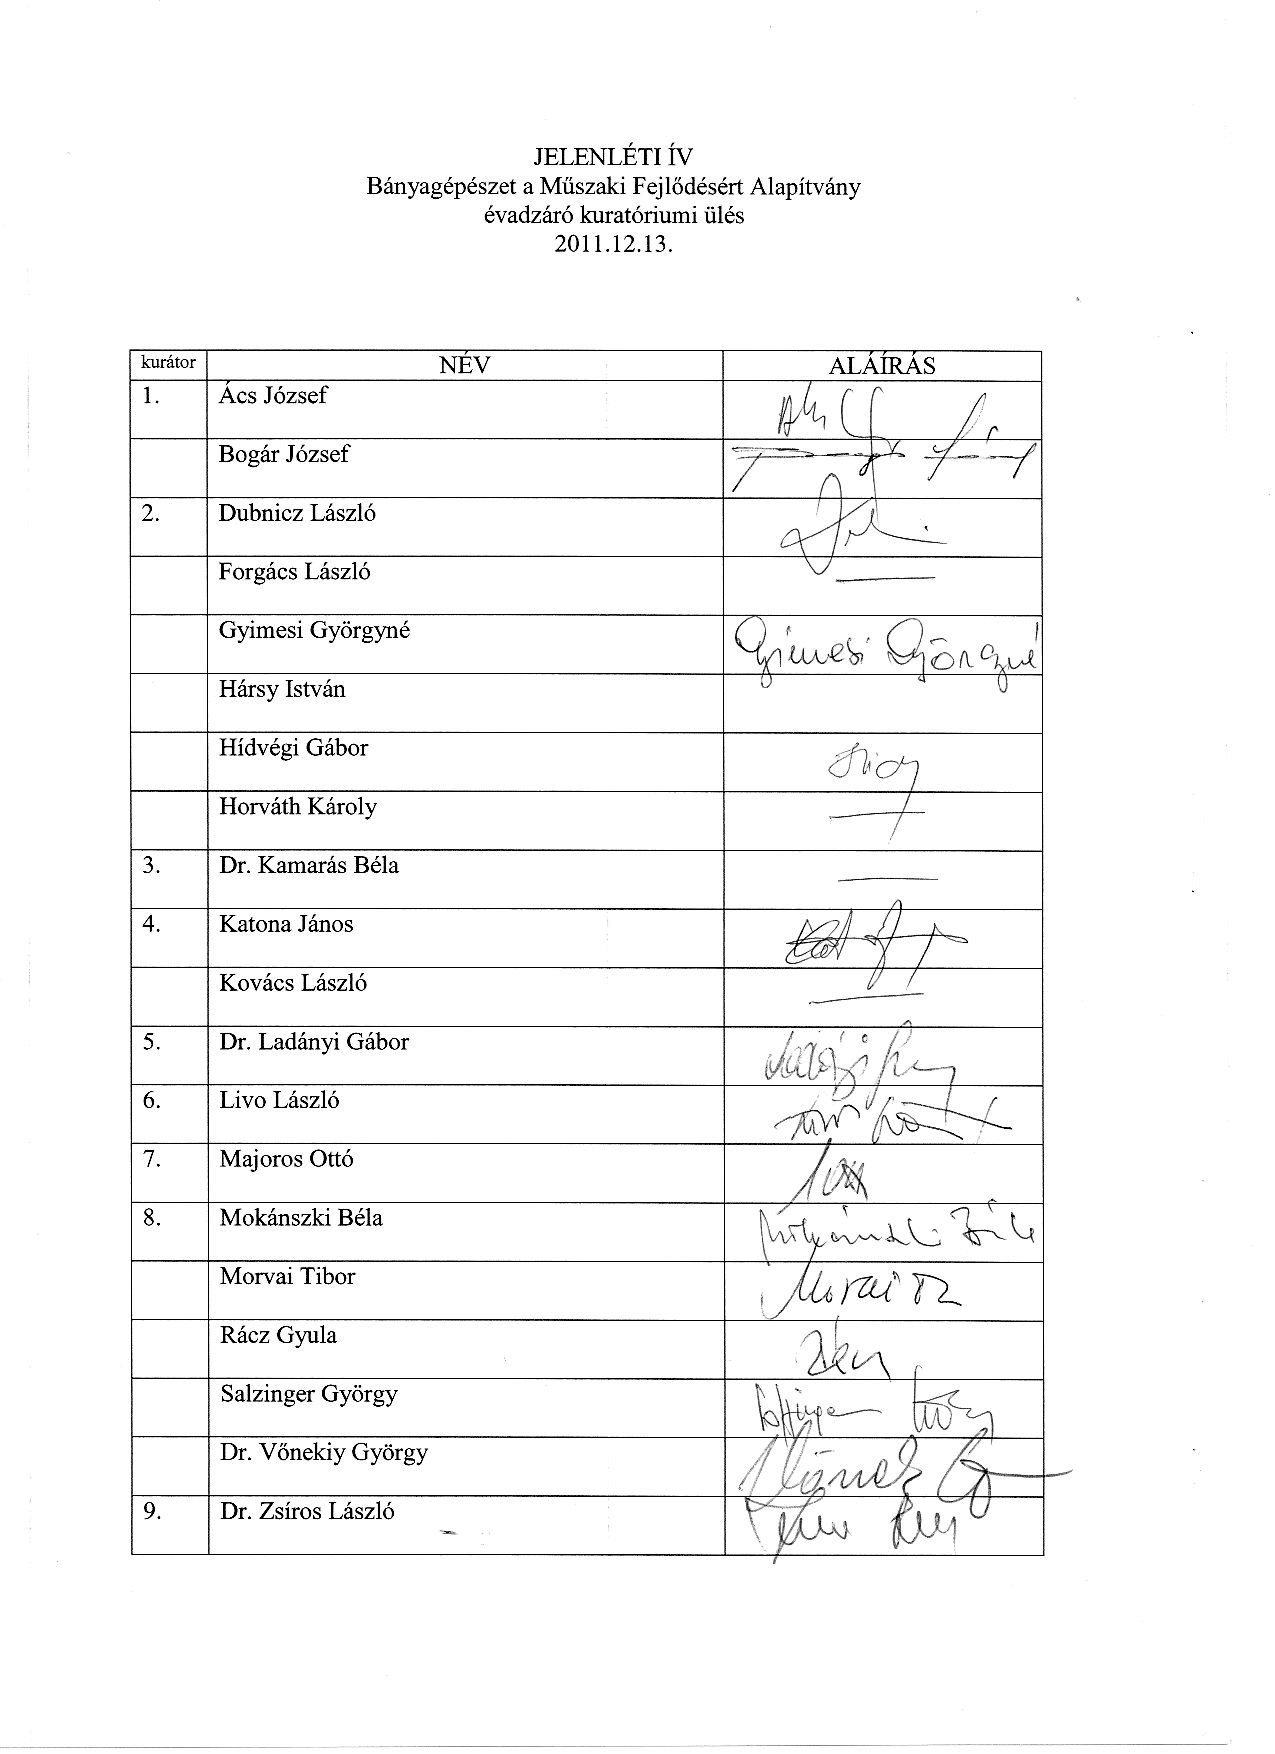 JELENLÉTI ÍV
Bányagépészet a Műszaki Fejlődésért Alapítvány
évadzáró kuratóriumi ülés
2011.12.13.
kurátor NÉV ALÁÍRÁS
1. Ács József
Bogár József
2. Dubnicz László
Forgács László
Gyimesi Györgyné Gyimesi Györgyné
Hársy István
Hídvégi Gábor
Horváth Károly
3. Dr. Kamarás Béla
4. Katona János
Kovács László
5. Dr. Ladányi Gábor
6. Livo László
7. Majoros Ottó
8. Mokánszki Béla
Morvai Tibor
Rácz Gyula
Salzinger György
Dr. Vőnekiy György
9. Dr. Zsíros László